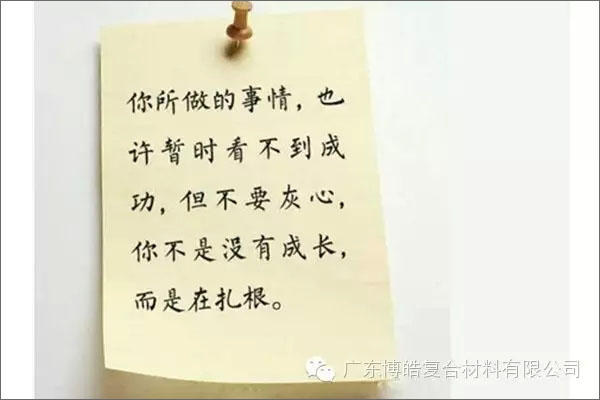 你所做的事情，也
许暂时看不到成
功，但不要灰心，
你不是没有成长，
而是在扎根。
广东博皓复合材料有限公司